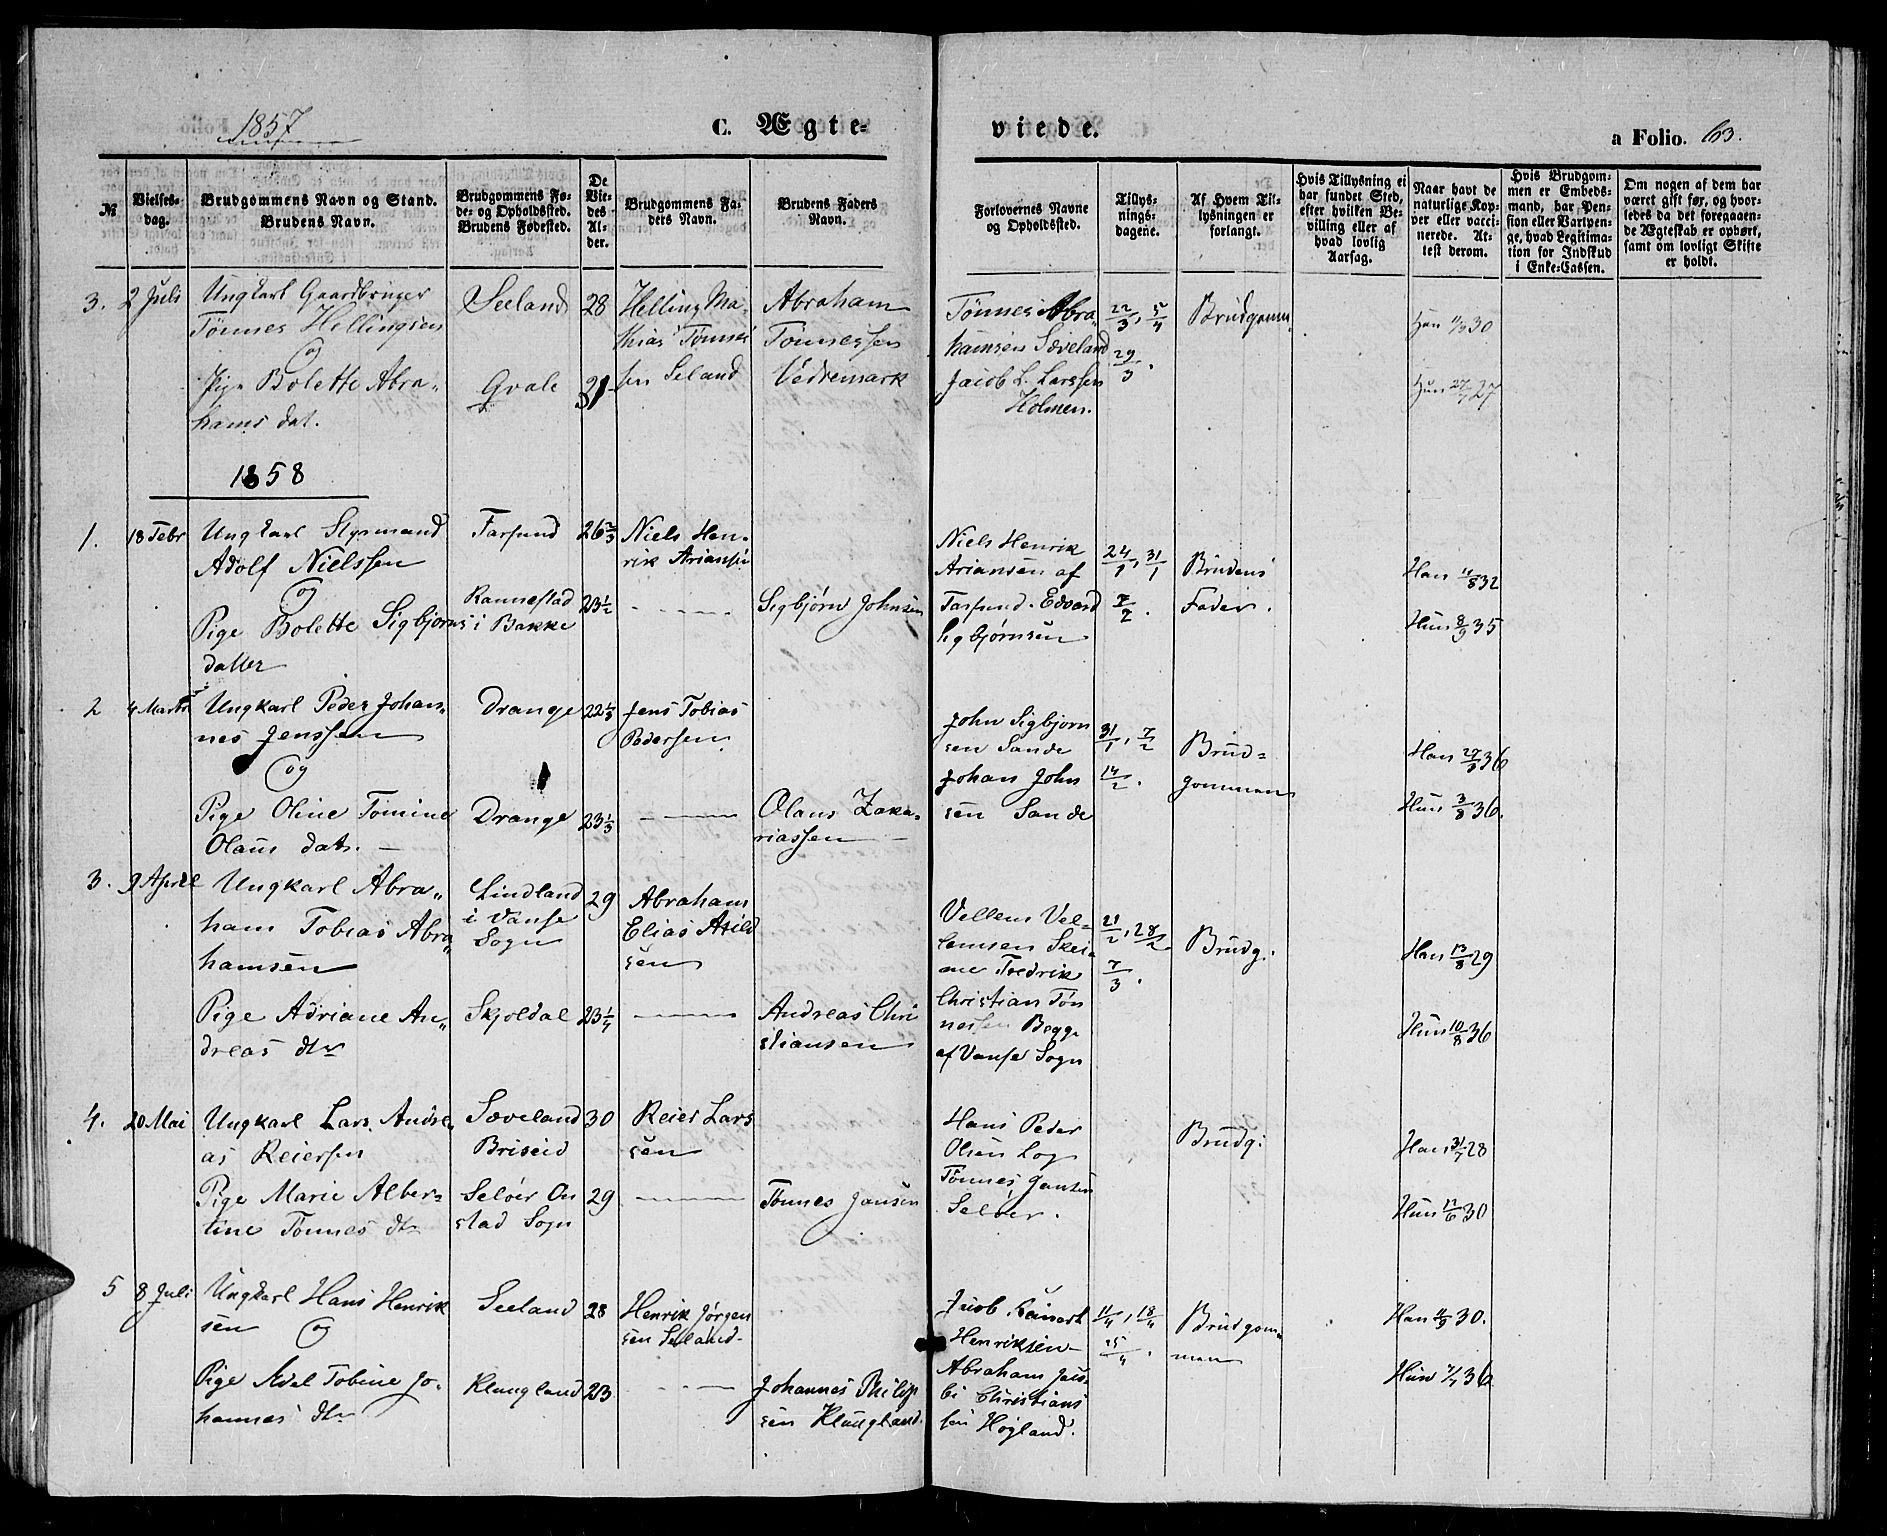 1857
C. Ægte-
viede.
a Folio. 63.
№
Vielses-
dag.
Brudgommens Navn og Stand.
Brudens Navn.
Brudgommens Fø-
de- og Opholdssted.
Brudens Fødested.
De
Vie-
des
Al-
der.
Brudgommens Fa-
ders Navn.
Brudens Faders
Navn.
Forlovernes Navne
og Opholdssted.
Tillys-
nings-
dagene.
Af Hvem Til-
lysningen er
forlangt.
Hvis Tillysning ei
har fundet Sted,
efter hvilken Be-
villing eller af
hvad lovlig
Aarsag.
Naar havt de
naturlige Kop-
per eller vacci-
nerede. At-
test derom.
Hvis Brudgom-
men er Embeds-
mand, har Pen-
sion eller Vartpen-
ge, hvad Legitima-
tion for Indskud
i Enke-Cassen.
Om nogen af dem har
været gift før, og hvor-
ledes da det foregaaen-
de Ægteskab er ophørt,
samt om lovligt Skifte
er holdt.
3. 2 Juli
Ungkarl Gaardbruger
Tønnes Hellingsen
og
Pige Bolette Abra„
hams dat.
Seeland
Qvale
28
31
Helling Ma-
thias Tønnes
sen Seland
Abraham
Tønnessen
Vedremark
Tønnes Abra„
hamsen Sæveland
Jacob L. Larssen
Holmen.
22/3, 5/4
29/3.
Brudgomm.
Han 30
Hun 27
1858
1. 18 Febr
Ungkarl Styrmand
Adolf Nielssen
og
Pige Bolette Sigbjørns
datter
Farsund
Rannestad
i Bakke
26 2/3
23 1/2
Niels Hen-
rik Ariansen
Sigbjørn Johnsen
Niels Henrik
Ariansen af
Farsund. Edvard
Sigbjørnsen
24/1, 31/1
7/2.
Brudens
Fader.
Han 11/8 32
Hun 8/9 35
2 4 Marts
Ungkarl Peder Johan„
nes Jenssen
og
Pige Oline Tomine
Olaus dat.
Drange
Drange
22 1/3
23 1/3
Jens Tobias
Pedersen
Olaus Zaka-
riassen
John Sigbjørn
sen Sande
Johan John
sen Sande
31/1, 7/2
14/2.
Brud=
gommen
Han 36
Hun 3/8 36.
3. 9 April
Ungkarl Abra„
ham Tobias Abra„
hamsen
Pige Adriane An„
dreas dtr
Lindland
i Vanse
Sogn
Skjoldal
29
23 1/4
Abraham
Elias Arild
sen
Andreas Chri
stiansen
Vellem Vel-
lemsen Skei
ne Fredrik
Christian Tøn
nessen Begge
af Vanse Sogn
21/2, 28/2
7/3.
Brudg.
Han 13/8 29
Hun 10/8 36
4. 20 Mai
Ungkarl Lars Andre„
as Reiersen
Pige Marie Alber-
tine Tønnes dtr
Sæveland
Briseid
Seløer On
stad Sogn
30
29
Reier Lars
sen
Tønnes Jansen
Hans Peder
Olsen Log
Tønnes Jansen
Seløer.
Brudg:
Han 31/7 28
Hun 30
5 8 Juli
Ungkarl Hans Henrik
sen
og
Pige Adel Tobine Jo-
hannes dtr
Seeland
Klungland
28
23
Henrik Jørgen
sen Seland-
Johannes Philip
sen Klungland.
Jacob Reinert
Henriksen-
Abraham Jac
bi Christians
sen Høgland.
11/4, 18/4
25/4.
Brudgom„
men
Han 30.
Hun 36